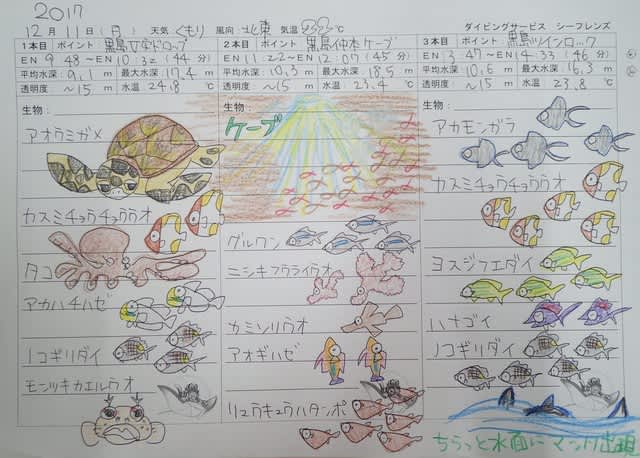 2017
12月11日(月) 天気 くもり 風向 北東 気温 ℃ ダイビングサービス シーフレンズ
1本目 ポイント 黒島 ドロップ
EN 9:48～EN 10:32 (44分)
平均水深 9.1 m 最大水深 17.4 m
透明度 ～15 m 水温 24.8 ℃
生物:
アオウミガメ
カスミチョウチョウウオ
タコ
アカハチハゼ
ノコギリダイ
モンツキカエルウオ
2本目 ポイント 黒島仲本ケーブ
EN 11:22～EN 12:07 (45分)
平均水深 10.3 m 最大水深 18.5 m
透明度 ～15 m 水温 23.4 ℃
生物:
ケーブ
グルクン
ニシキフウライウオ
カミソリウオ
アオギハゼ
リュウキュウハタンポ
3本目 ポイント 黒島ツインロック
EN 3:47～EN 4:33 (46分)
平均水深 10.6 m 最大水深 16.3 m
透明度 ～15 m 水温 23.8 ℃
生物:
アカモンガラ
カスミチョウチョウウオ
ヨスジフエダイ
ハナゴイ
ノコギリダイ
ちらっと水面にマンタ出現